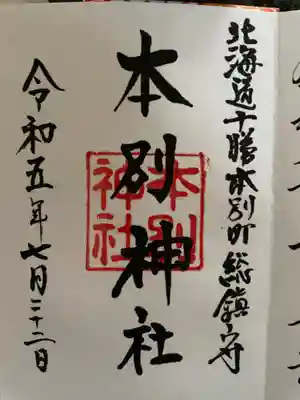 北海道十勝本別町総鎮守
本別神社
本別神社
令和五年七月二十二日